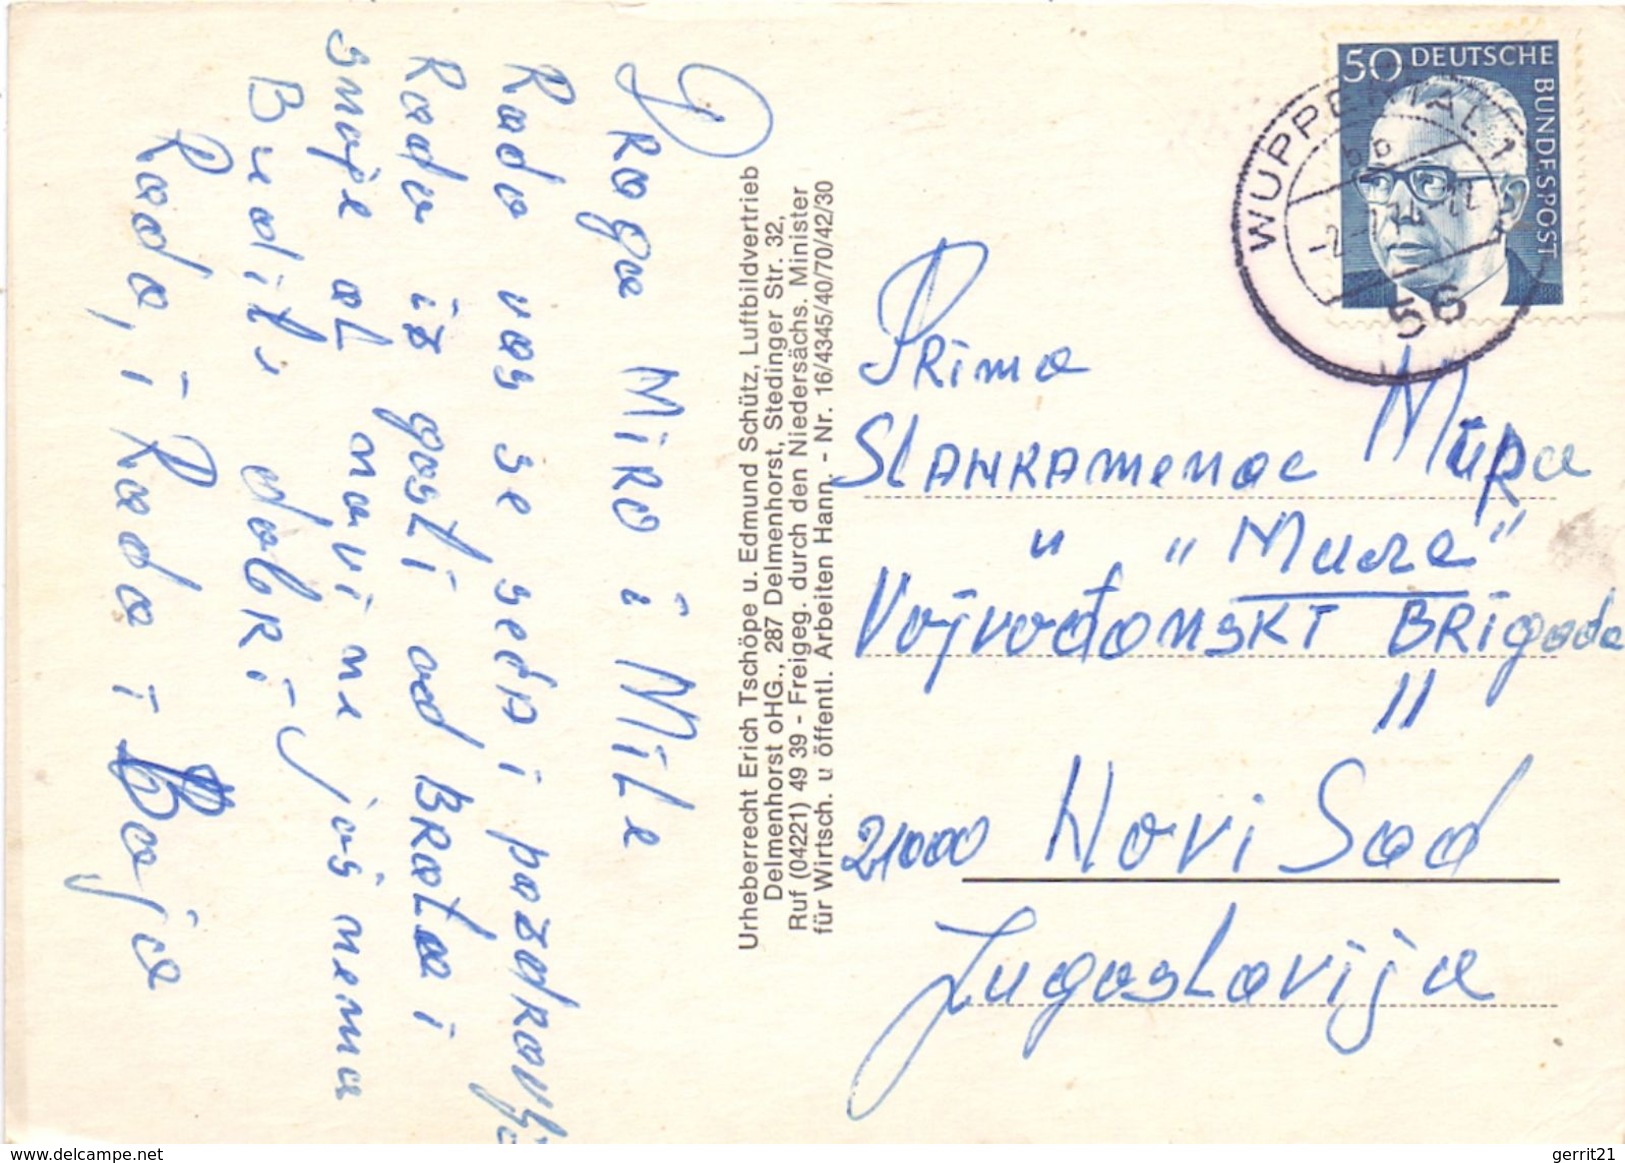 Draga Miro i Mile
Rado vas se seća i pozdravlja
Rada iz gosti od Brata i
smoje al navi ne još nema
Budite dobri
Rado, i Rada i Baja
Urheberrecht Erich Tschöpe u. Edmund Schütz, Luftbildvertrieb
Delmenhorst oHG., 287 Delmenhorst, Stedinger Str. 32,
Ruf (04221) 49 39 - Freigeg. durch den Niedersächs. Minister
für Wirtsch. u öffentl. Arbeiten Hann. - Nr. 16/4345/40/70/42/30
50 DEUTSCHE
BUNDESPOST
WUPPERTAL 1
56
Prima
Slankamenac Mira
u "Mure"
Vojvođanski Brigada
11
21000 Novi Sad
Jugoslavija
www.delcampe.net
gerrit21